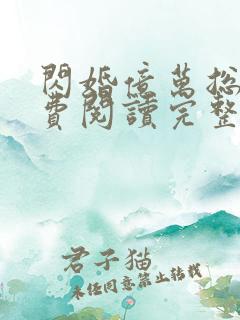 閃婚億萬总
費閱讀完整
君子猫
未任同意禁止转载